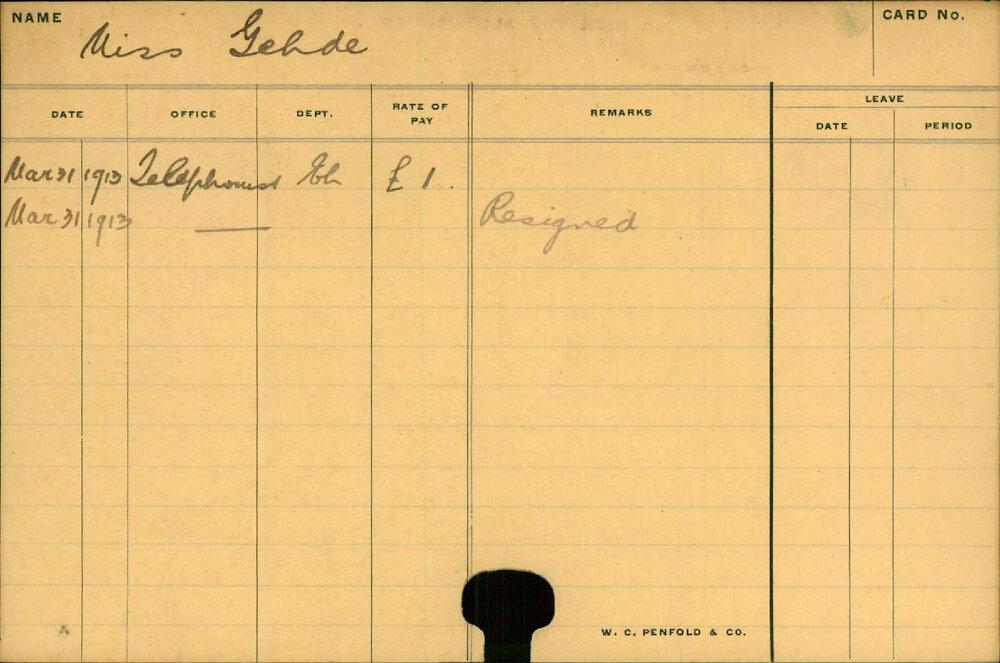 NAME
CARD No.
Miss Gehde
DATE OFFICE DEPT. RATE OF PAY REMARKS LEAVE
DATE PERIOD
Mar 31 1913 Telephonist £1.
Mar 31 1913 — Resigned
W. C. PENFOLD & CO.